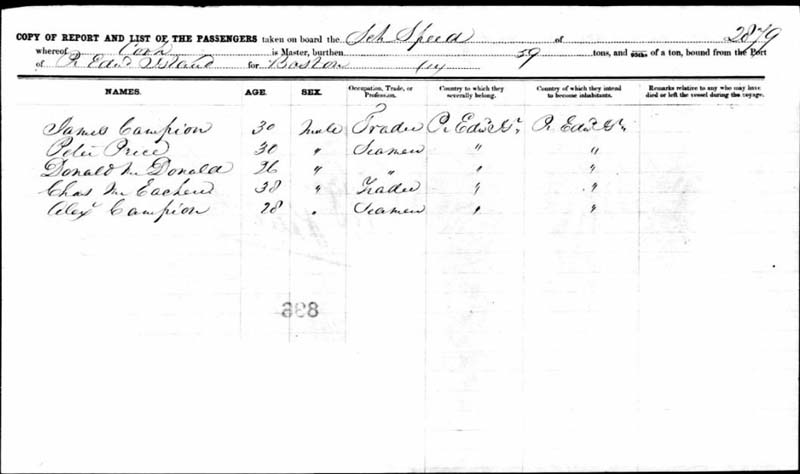 2879
COPY OF REPORT AND LIST OF THE PASSENGERS taken on board the Sch Speed of
whereof Cook is Master, burthen 59 tons, and of a ton, bound from the Port
of P. Edwd Island for Boston
NAMES. AGE. SEX. Occupation, Trade, or Profession. Country to which they severally belong. Country of which they intend to become inhabitants. Remarks relative to any who may have died or left the vessel during the voyage.
James Campion 30 Male Trader P. Edwd Is. P. Edwd Is.
Peter Price 30 " Seamen " "
Donald Mc Donald 26 " " " "
Chas Mc Eachen 38 " Trader " "
Alexr Campion 28 " Seamen " "